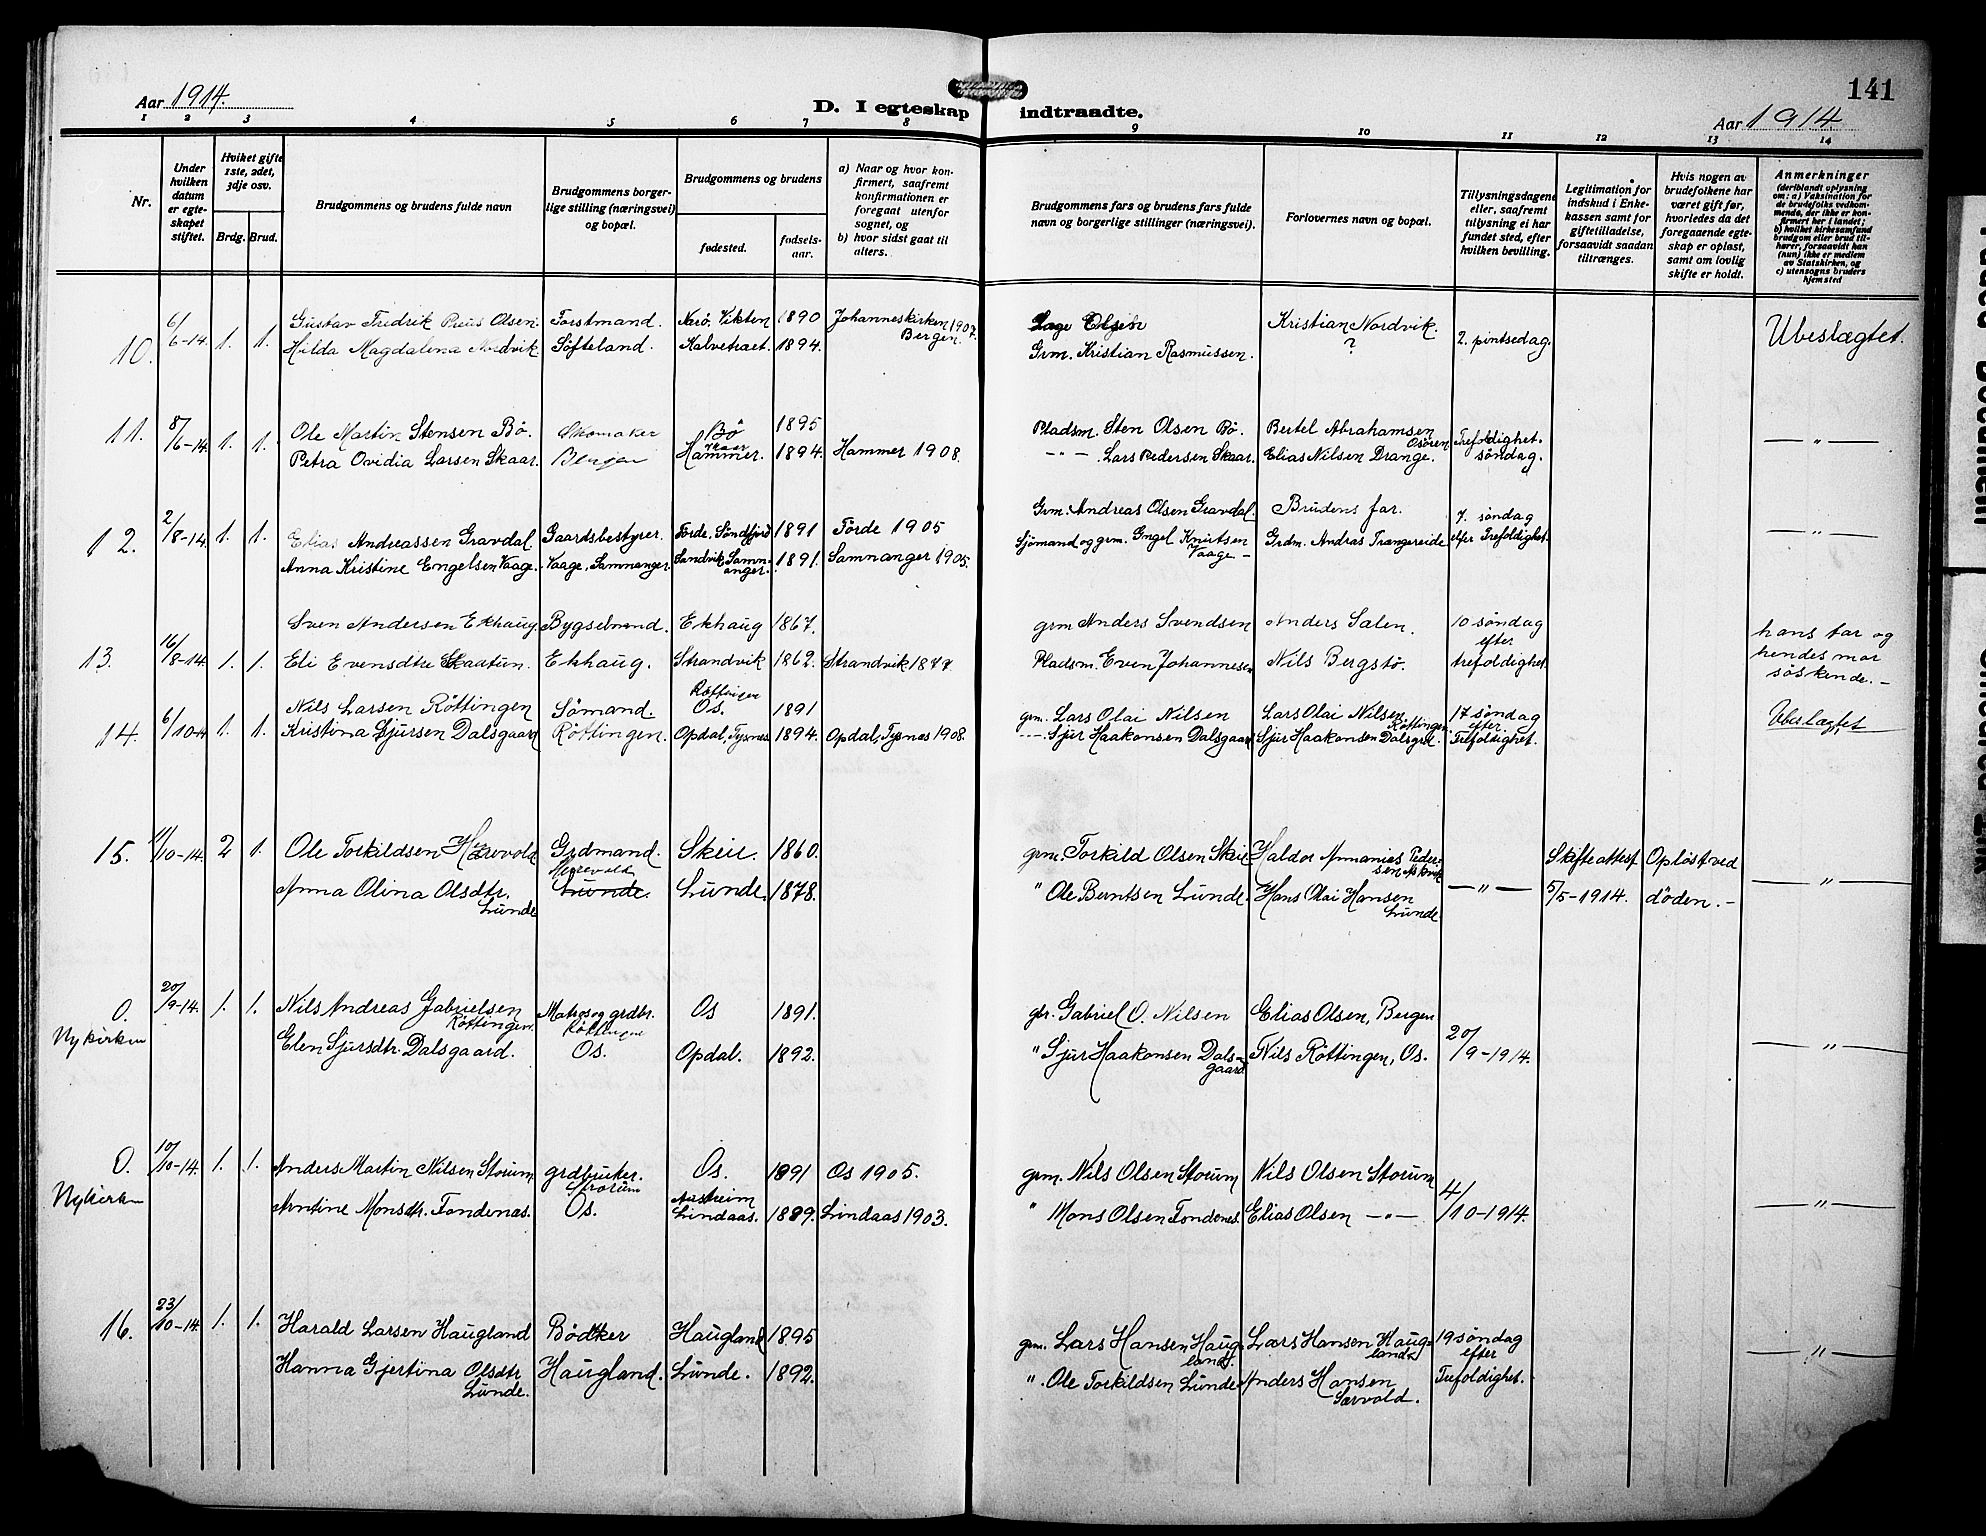 Aar 1914.
D. I egteskap indtraadte.
141
Aar 1914
1 2 3 4 5 6 7 8 9 10 11 12 13 14
Nr.
Under hvilken datum er egteskapet stiftet.
Hvilket gifte 1ste, 2det, 3dje osv.
Brdg. Brud.
Brudgommens og brudens fulde navn
Brudgommens borgerlige stilling (næringsvei) og bopæl.
Brudgommens og brudens
fødested.
fødselsaar.
a) Naar og hvor konfirmert, saafremt konfirmationen er foregaat utenfor sognet, og
b) hvor sidst gaat til alters.
Brudgommens fars og brudens fars fulde navn og borgerlige stillinger (næringsvei).
Forlovernes navn og bopæl.
Tillysningsdagene eller, saafremt tillysning ei har fundet sted, efter hvilken bevilling.
Legitimation for indskud i Enkekassen samt for giftetilladelse, forsaavidt saadan tiltrænges.
Hvis nogen av brudefolkene har været gift før, hvorledes da det foregaaende egteskap er opløst, samt om lovlig skifte er holdt.
Anmerkninger
(deriblandt oplysning om: a) Vaksination for de brudefolks vedkommende, der ikke er konfirmert her i landet; b) hvilket kirkesamfund brudgom eller brud tilhører, forsaavidt han (hun) ikke er medlem av Statskirken, og c) utensogns bruders hjemsted
10. 6/6-14. 1. 1. Gustav Fredrik Preus Olsen. Forstmand. Nærö, Vikten 1890 Johanneskirken 1907. Bergen. Lage Olsen Kristian Nordvik. 2. pintsedag Ubeslægtet.
Hilda Magdalena Nordvik Söfteland. Kalvetræet. 1894. Grm. Kristian Rasmussen. ?
11. 8/6-14. 1. 1. Ole Martin Stensen Bö. Skomaker Bö 1895 Pladsm. Sten Olsen Bö. Bertel Abrahamsen Osören Trefoldighet. — " —
Petra Ovidia Larsen Skaar. Bergen Skaar Hammer. 1894. Hammer 1908. — " — Lars Pedersen Skaar. Elias Nilsen Drange. söndag.
12. 2/8-14. 1. 1. Elias Andreassen Gravdal. Gaardsbestyrer. Förde, Söndfjord 1891 Förde 1905 Grm. Andreas Olsen Gravdal. Brudens far. 7. söndag — " —
Anna Kristine Engelsen Vaage. Vaage, Samnanger. Sandvik, Samnanger. 1891. Samnanger 1905. Sjömand og grm. Engel Knutsen Vaage — Grdm. Andras Trangereide efter Trefoldighet.
13. 16/8-14. 1. 1. Sven Andersen Ekhaug. Bygselmand. Ekhaug 1867. grm Anders Svendsen Anders Salen. 10 söndag efter hans far og
Eli Evensdtr Skaatun. Ekhaug. Strandvik 1862. Strandvik 1877 Pladsm. Even Johannesen Nils Bergstö. trefoldighet. hendes mor söskende. —
14. 6/10-14 1. 1. Nils Larsen Röttingen Sömand. Röttingen Os. 1891 grm. Lars Olai Nilsen Lars Olai Nilsen Röttingen 17 söndag efter Ubeslægtet
Kristina Sjursen Dalsgaard Röttingen. Opdal, Tysnes 1894. Opdal, Tysnes 1908. — Sjur Haakonsen Dalsgaard Sjur Haakonsen Dalsgrd. Trefoldighet.
15. 11/10-14. 2 1. Ole Torkildsen Hærevold Grdmand. Skeie. 1860. grm. Torkild Olsen Skeie Haldor Ananias Pedersen Skifteattest Opløst ved — " —
Anna Olina Olsdtr. Lunde Herevold Lunde. Lunde. 1878. " Ole Berntsen Lunde. Hans Olai Hansen Lunde — " — 5/5-1914. döden. —
O. Nykirken 20/9-14. 1. 1. Nils Andreas Gabrielsen Röttingen. Matros og grdbr. Röttingen Os 1891. gbr. Gabriel O. Nilsen Elias Olsen, Bergen 20/9-1914. — " —
Elen Sjursdtr. Dalsgaard. Os. Opdal. 1892. " Sjur Haakonsen Dalsgaard Nils Röttingen, Os.
O. Nykirken 10/10-14. 1. 1. Anders Martin Nilsen Storum grdbruker. Storum Os. 1891 Os 1905. grm. Nils Olsen Storum Nils Olsen Storum 4/10-1914. — " —
Antine Monsdtr. Fondenes. Os. Aasheim Lindaas. 1889. Lindaas 1903. " Mons Olsen Fondenes. Elias Olsen — " —
16. 23/10-14. 1. 1. Harald Larsen Haugland Bödker Haugland 1895 grm. Lars Hansen Haugland. Lars Hansen Haugland 19 söndag efter — " —
Hanna Gjertina Olsdtr Lunde. Haugland. Lunde. 1892. " Ole Torkildsen Lunde Anders Hansen Særvold. Trefoldighet.